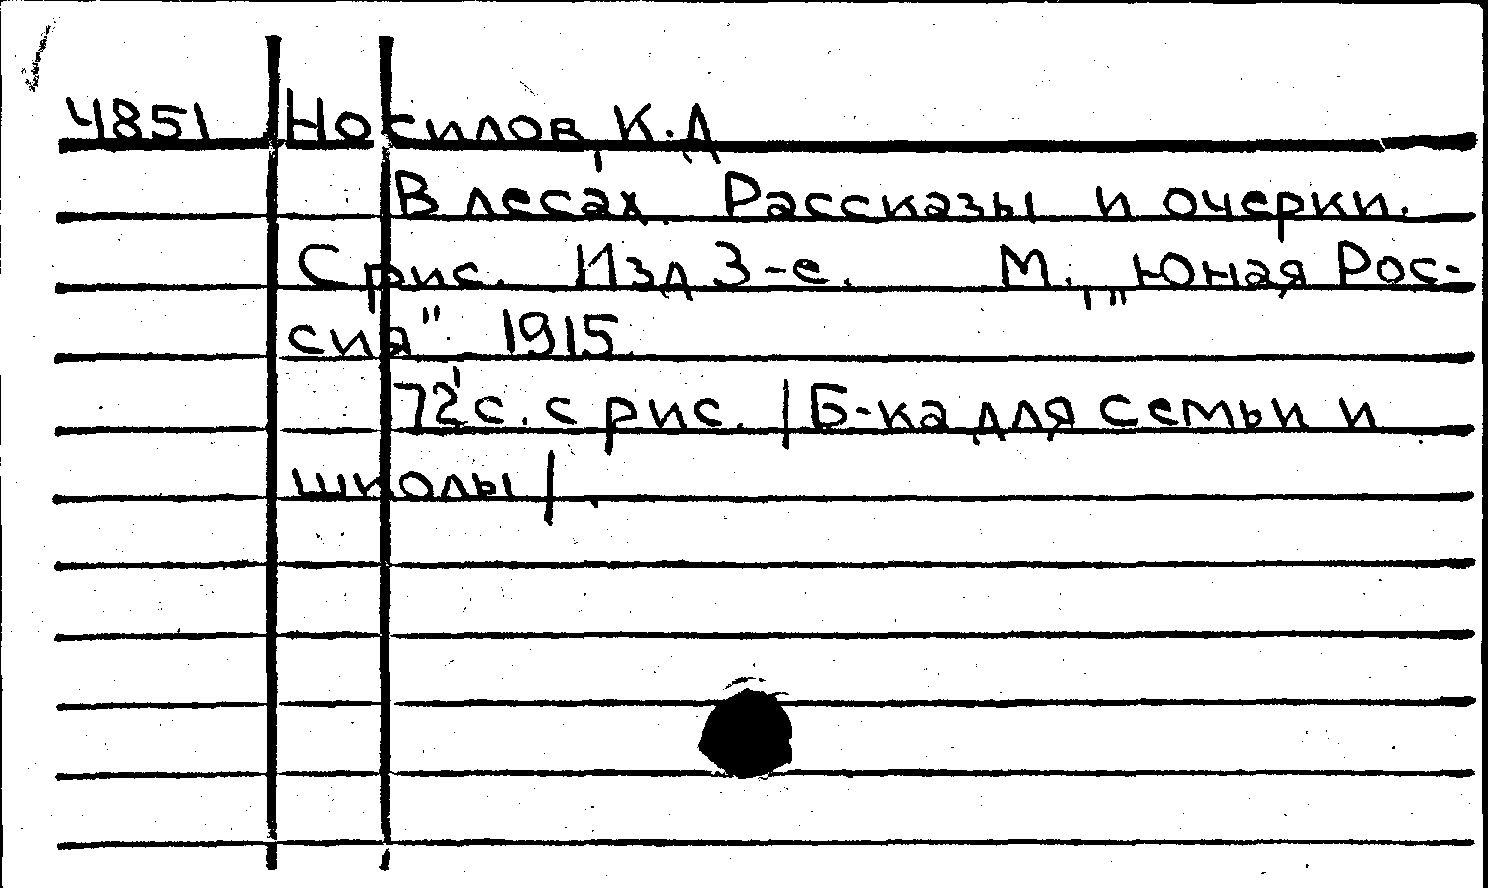 4851 Носилов, К.Д
В лесах. Рассказы и очерки.
С рис. Изд 3-е. М., „Юная Рос-
сия". 1915.
72 с. с рис. |Б-ка для семьи и
школы|.